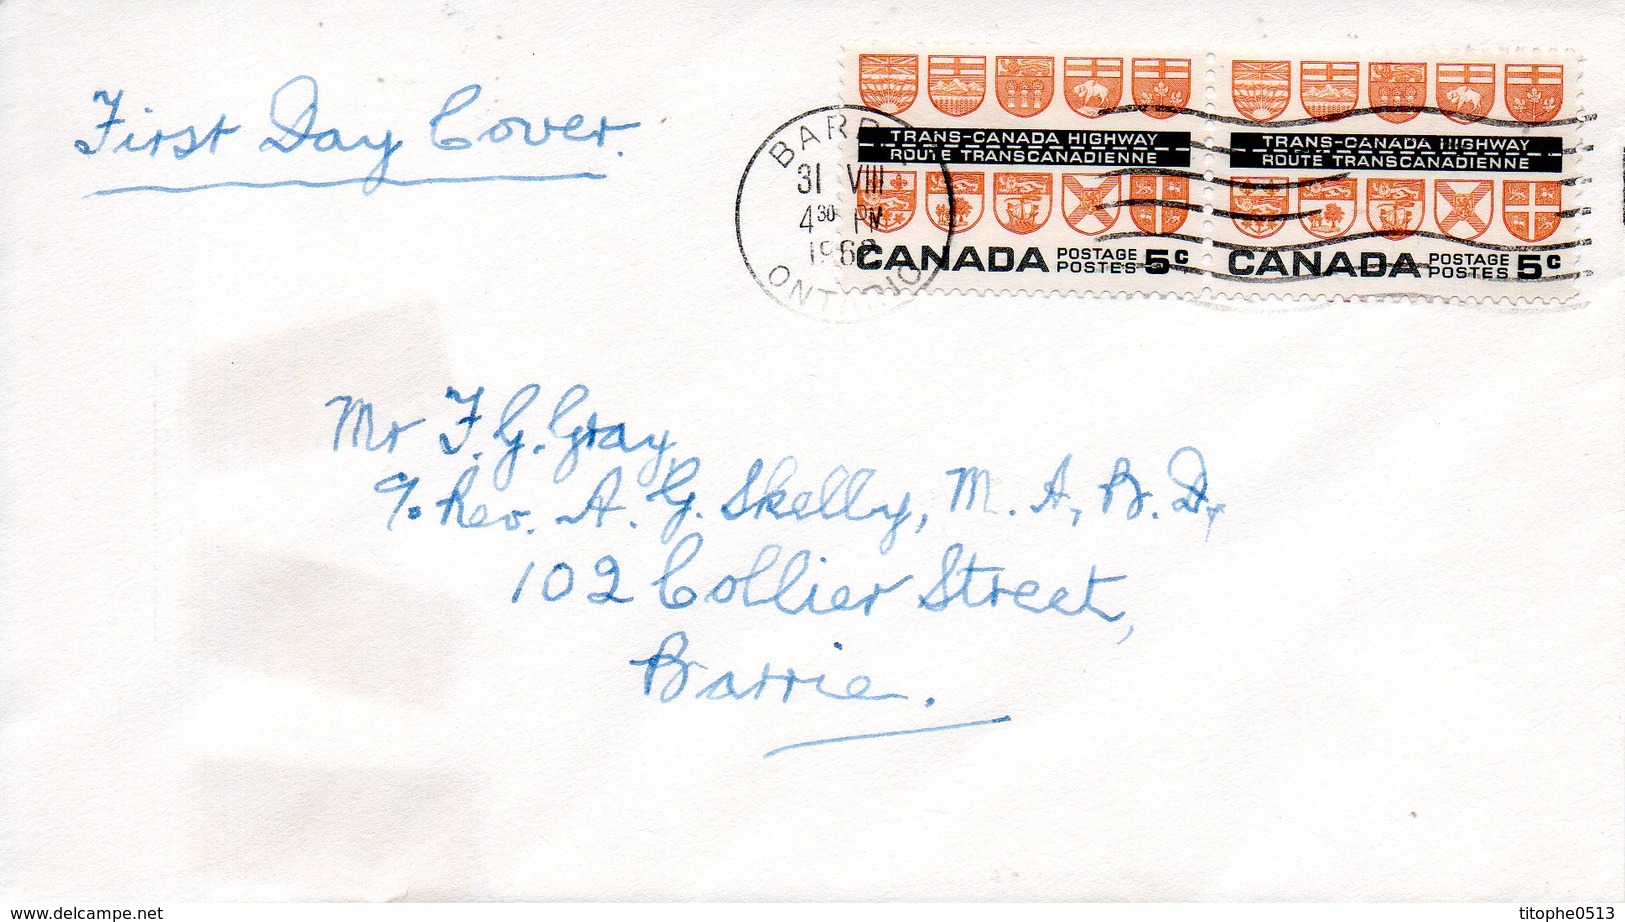 First Day Cover.
BARRIE
31 VIII
4 30 PM
1962
ONTARIO
TRANS-CANADA HIGHWAY
ROUTE TRANSCANADIENNE
CANADA POSTAGE POSTES 5c
TRANS-CANADA HIGHWAY
ROUTE TRANSCANADIENNE
CANADA POSTAGE POSTES 5c
Mr F. G. Gray,
c/o Rev. A. G. Skelly, M. A, B. D,
102 Collier Street,
Barrie.
www.delcampe.net
titophe0513